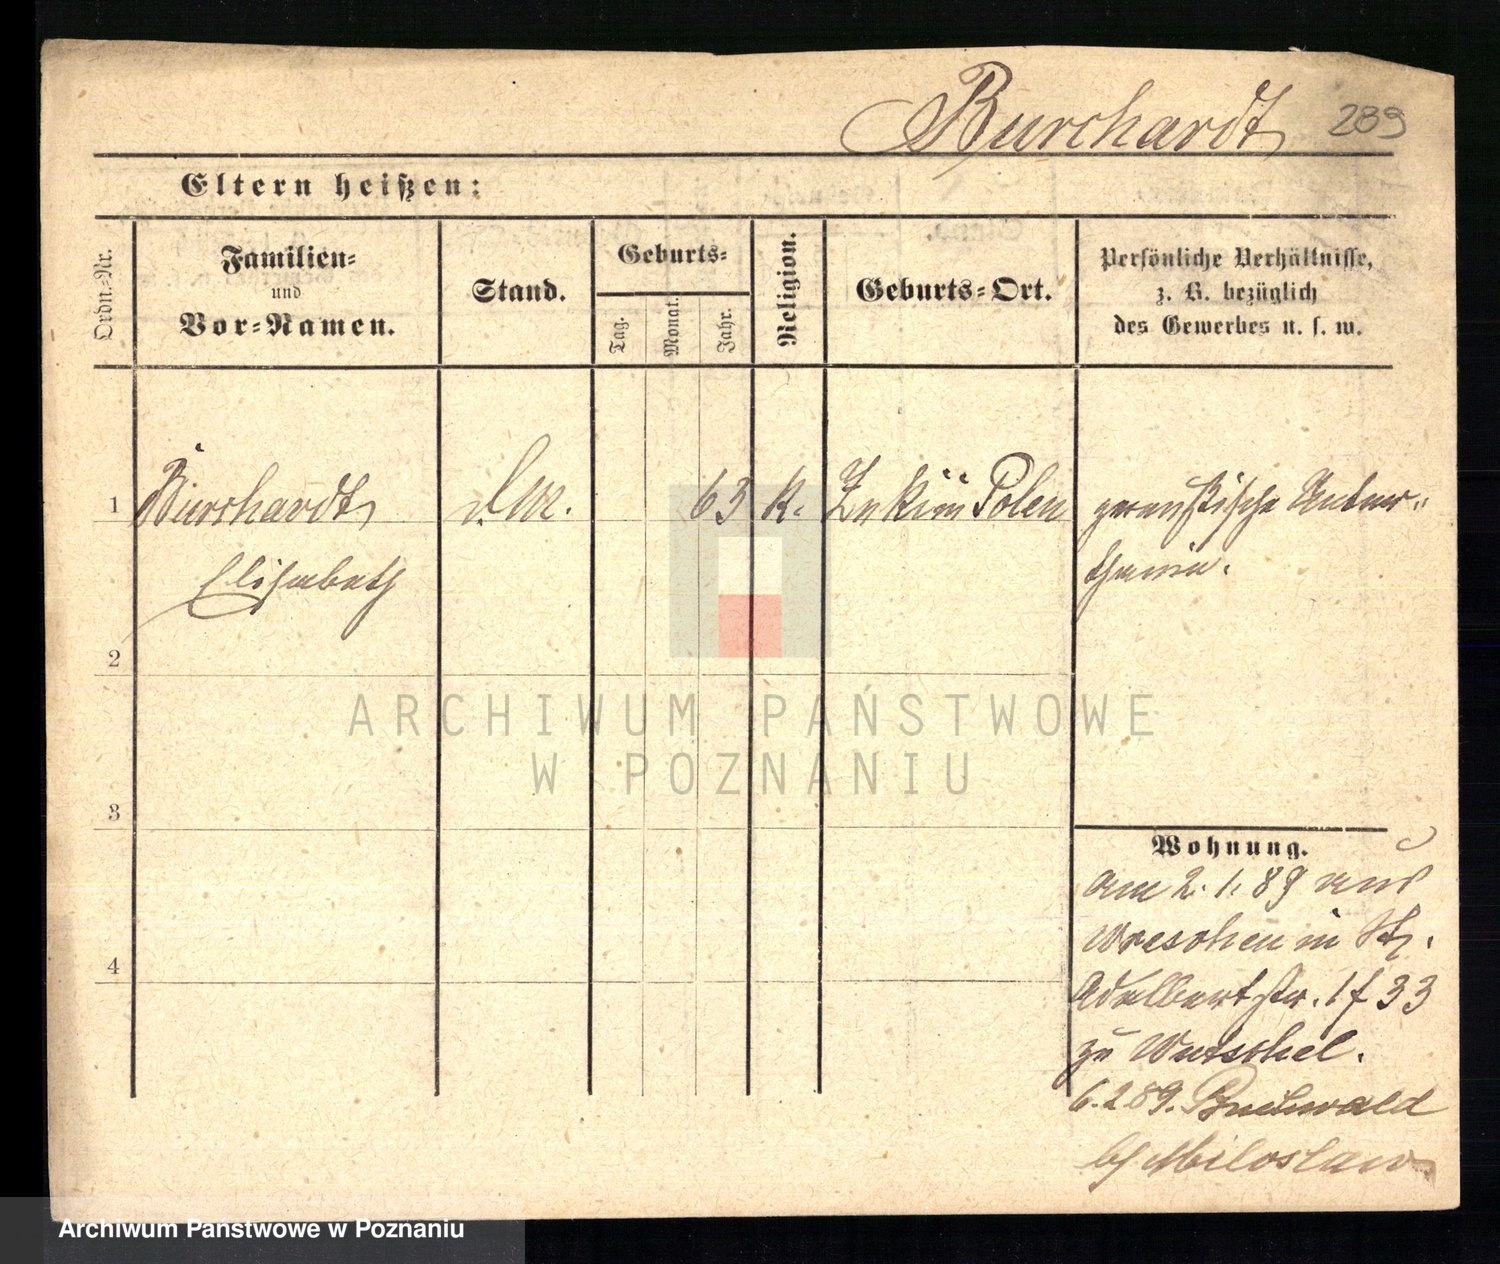 Burchardt 289
Eltern heißen:
Ordn.-Nr.
Familien=
und
Vor=Namen.
Stand.
Geburts=
Tag.
Monat.
Jahr.
Religion.
Geburts=Ort.
Persönliche Verhältnisse,
z. B. bezüglich
des Gewerbes u. s. w.
1 Burchardt 63 K. Polen preußische Unter-
Elisabeth thanin.
2
3
4
Wohnung.
am 2. 1. 89 aus
Wreschen in St.
Adalbertstr. 1 f 33
zu
6. 2 89. Buchwald
b/ Miloslaw
ARCHIWUM PAŃSTWOWE
W POZNANIU
Archiwum Państwowe w Poznaniu